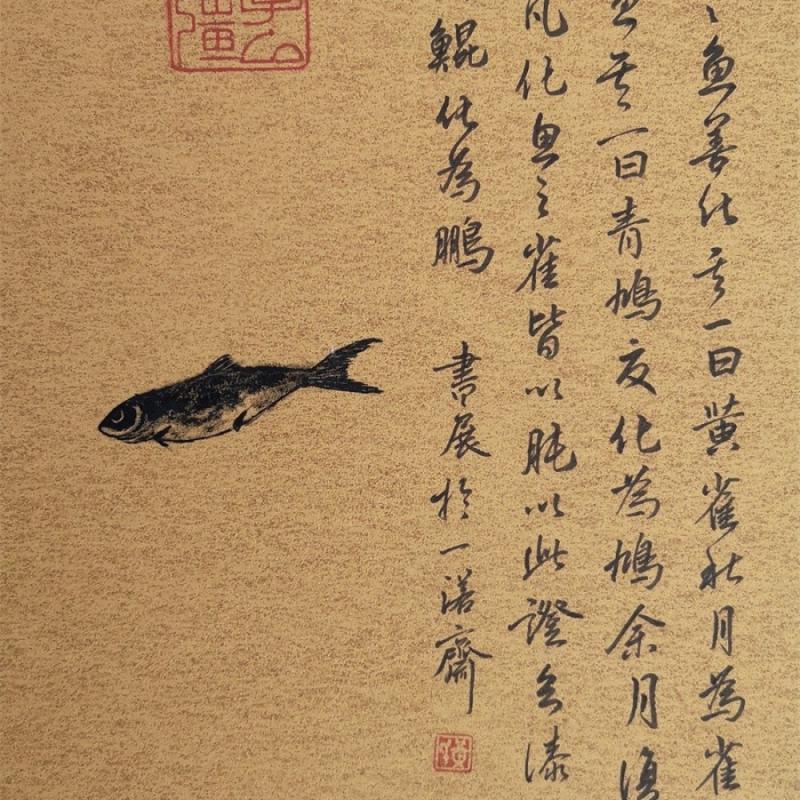 魚善化其一曰黄雀秋月為雀
魚其一曰青鳩化為鳩余月復
凡化魚之雀皆以肫以此證漆
鯤化為鵬 書展於一諾齋